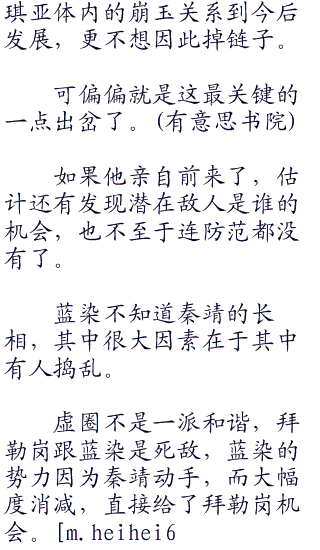 琪亚体内的崩玉关系到今后
发展，更不想因此掉链子。
可偏偏就是这最关键的
一点出岔了。(有意思书院)
如果他亲自前来了，估
计还有发现潜在敌人是谁的
机会，也不至于连防范都没
有了。
蓝染不知道秦靖的长
相，其中很大因素在于其中
有人捣乱。
虚圈不是一派和谐，拜
勒岗跟蓝染是死敌，蓝染的
势力因为秦靖动手，而大幅
度消减，直接给了拜勒岗机
会。[m.heihei6